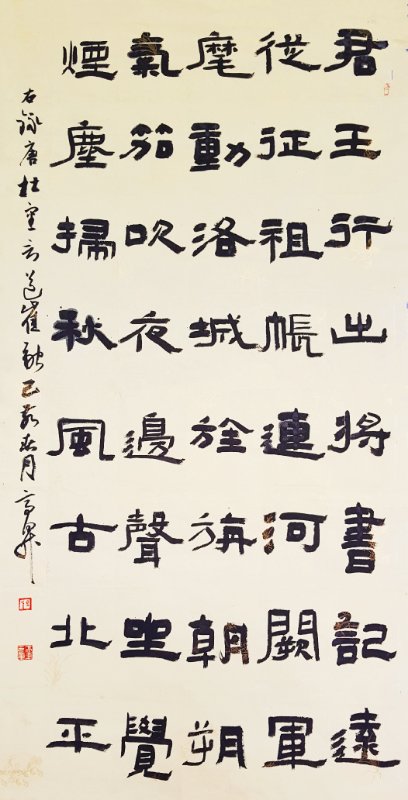 君王行出將書記遠
從征祖帳連河闕軍
麾動洛城旌旃朝朔
氣笳吹夜邊聲坐覺
煙塵掃秋風古北平
右錄唐杜審言送崔融己亥春月